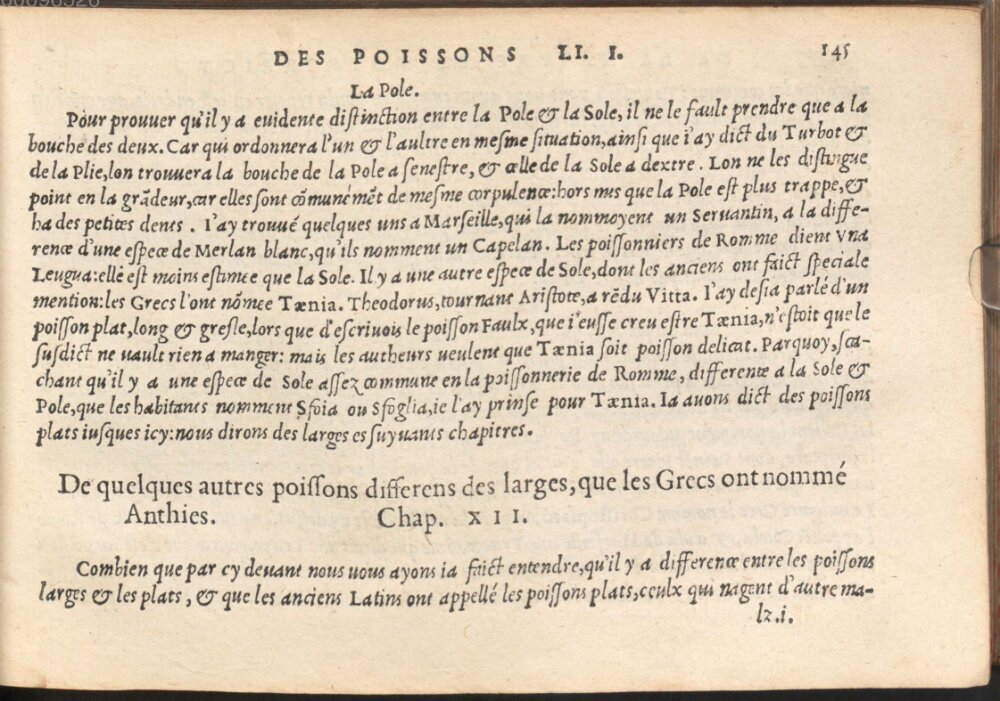 DES POISSONS LI. I. 145
La Pole.
Pour prouuer qu'il y a euidente distinction entre la Pole & la Sole, il ne le fault prendre que a la
bouche des deux. Car qui ordonnera l'un & l'aultre en mesme situation, ainsi que i'ay dict du Turbot &
de la Plie, lon trouuera la bouche de la Pole a senestre, & celle de la Sole a dextre. Lon ne les distingue
point en la grãdeur, car elles sont cõmunémẽt de mesme corpulence: hors mis que la Pole est plus trappe, &
ha des petites dents. I'ay trouué quelques uns a Marseille, qui la nommoyent un Seruantin, a la diffe-
rence d'une espece de Merlan blanc, qu'ils nomment un Capelan. Les poissonniers de Romme dient Vna
Leugua: elle est moins estimee que la Sole. Il y a une autre espece de Sole, dont les anciens ont faict speciale
mention: les Grecs l'ont nõmee Tænia. Theodorus, tournant Aristote, a rẽdu Vitta. I'ay desia parlé d'un
poisson plat, long & gresle, lors que d'escriuois le poisson Faulx, que i'eusse creu estre Tænia, n'estoit que le
susdict ne uault rien a manger: mais les autheurs ueulent que Tænia soit poisson delicat. Parquoy, sca-
chant qu'il y a une espece de Sole assez commune en la poissonnerie de Romme, differente a la Sole &
Pole, que les habitants nomment Sfoia ou Sfoglia, ie l'ay prinse pour Tænia. Ia auons dict des poissons
plats iusques icy: nous dirons des larges es suyuants chapitres.
De quelques autres poissons differens des larges, que les Grecs ont nommé
Anthies. Chap. XII.
Combien que par cy deuant nous uous ayons ia faict entendre, qu'il y a difference entre les poissons
larges & les plats, & que les anciens Latins ont appellé les poissons plats, ceulx qui nagent d'autre ma-
lz.i.